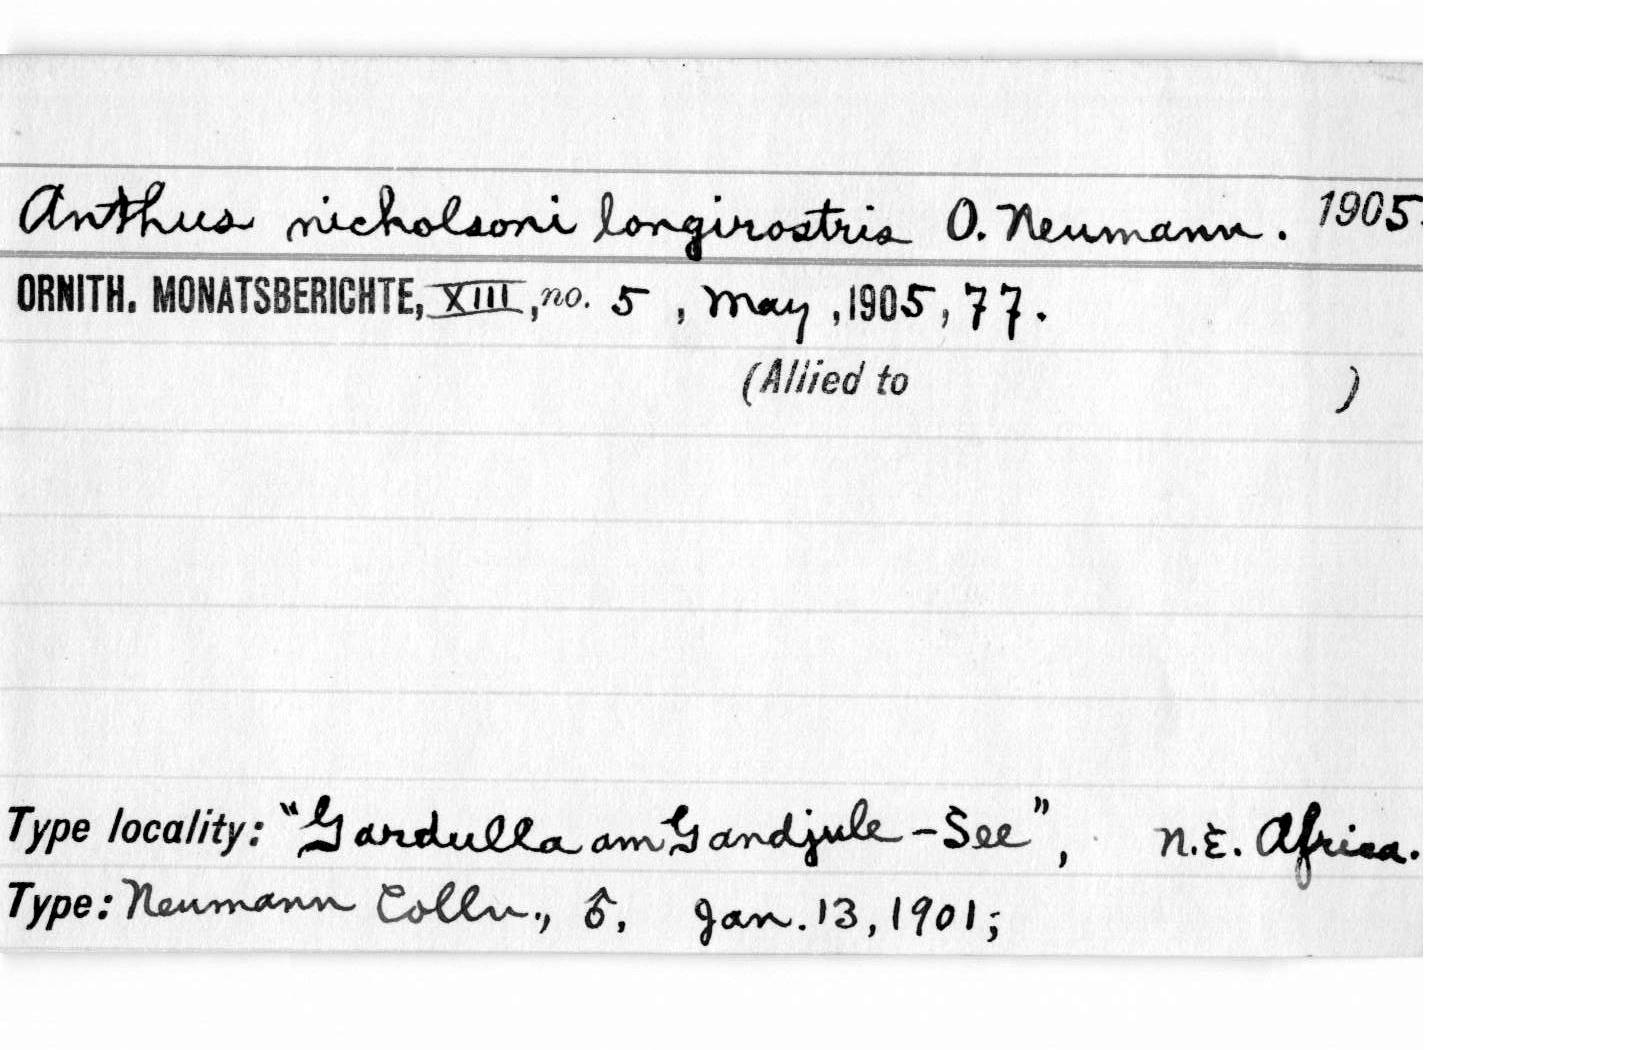 Anthus nicholsoni longirostris O. Neumann. 1905.
ORNITH. MONATSBERICHTE, XIII, no. 5, May, 1905, 77.
(Allied to )
Type locality: "Gardulla am Gandjule-See", N.E. Africa.
Type: Neumann Colln., ♂, Jan. 13, 1901;